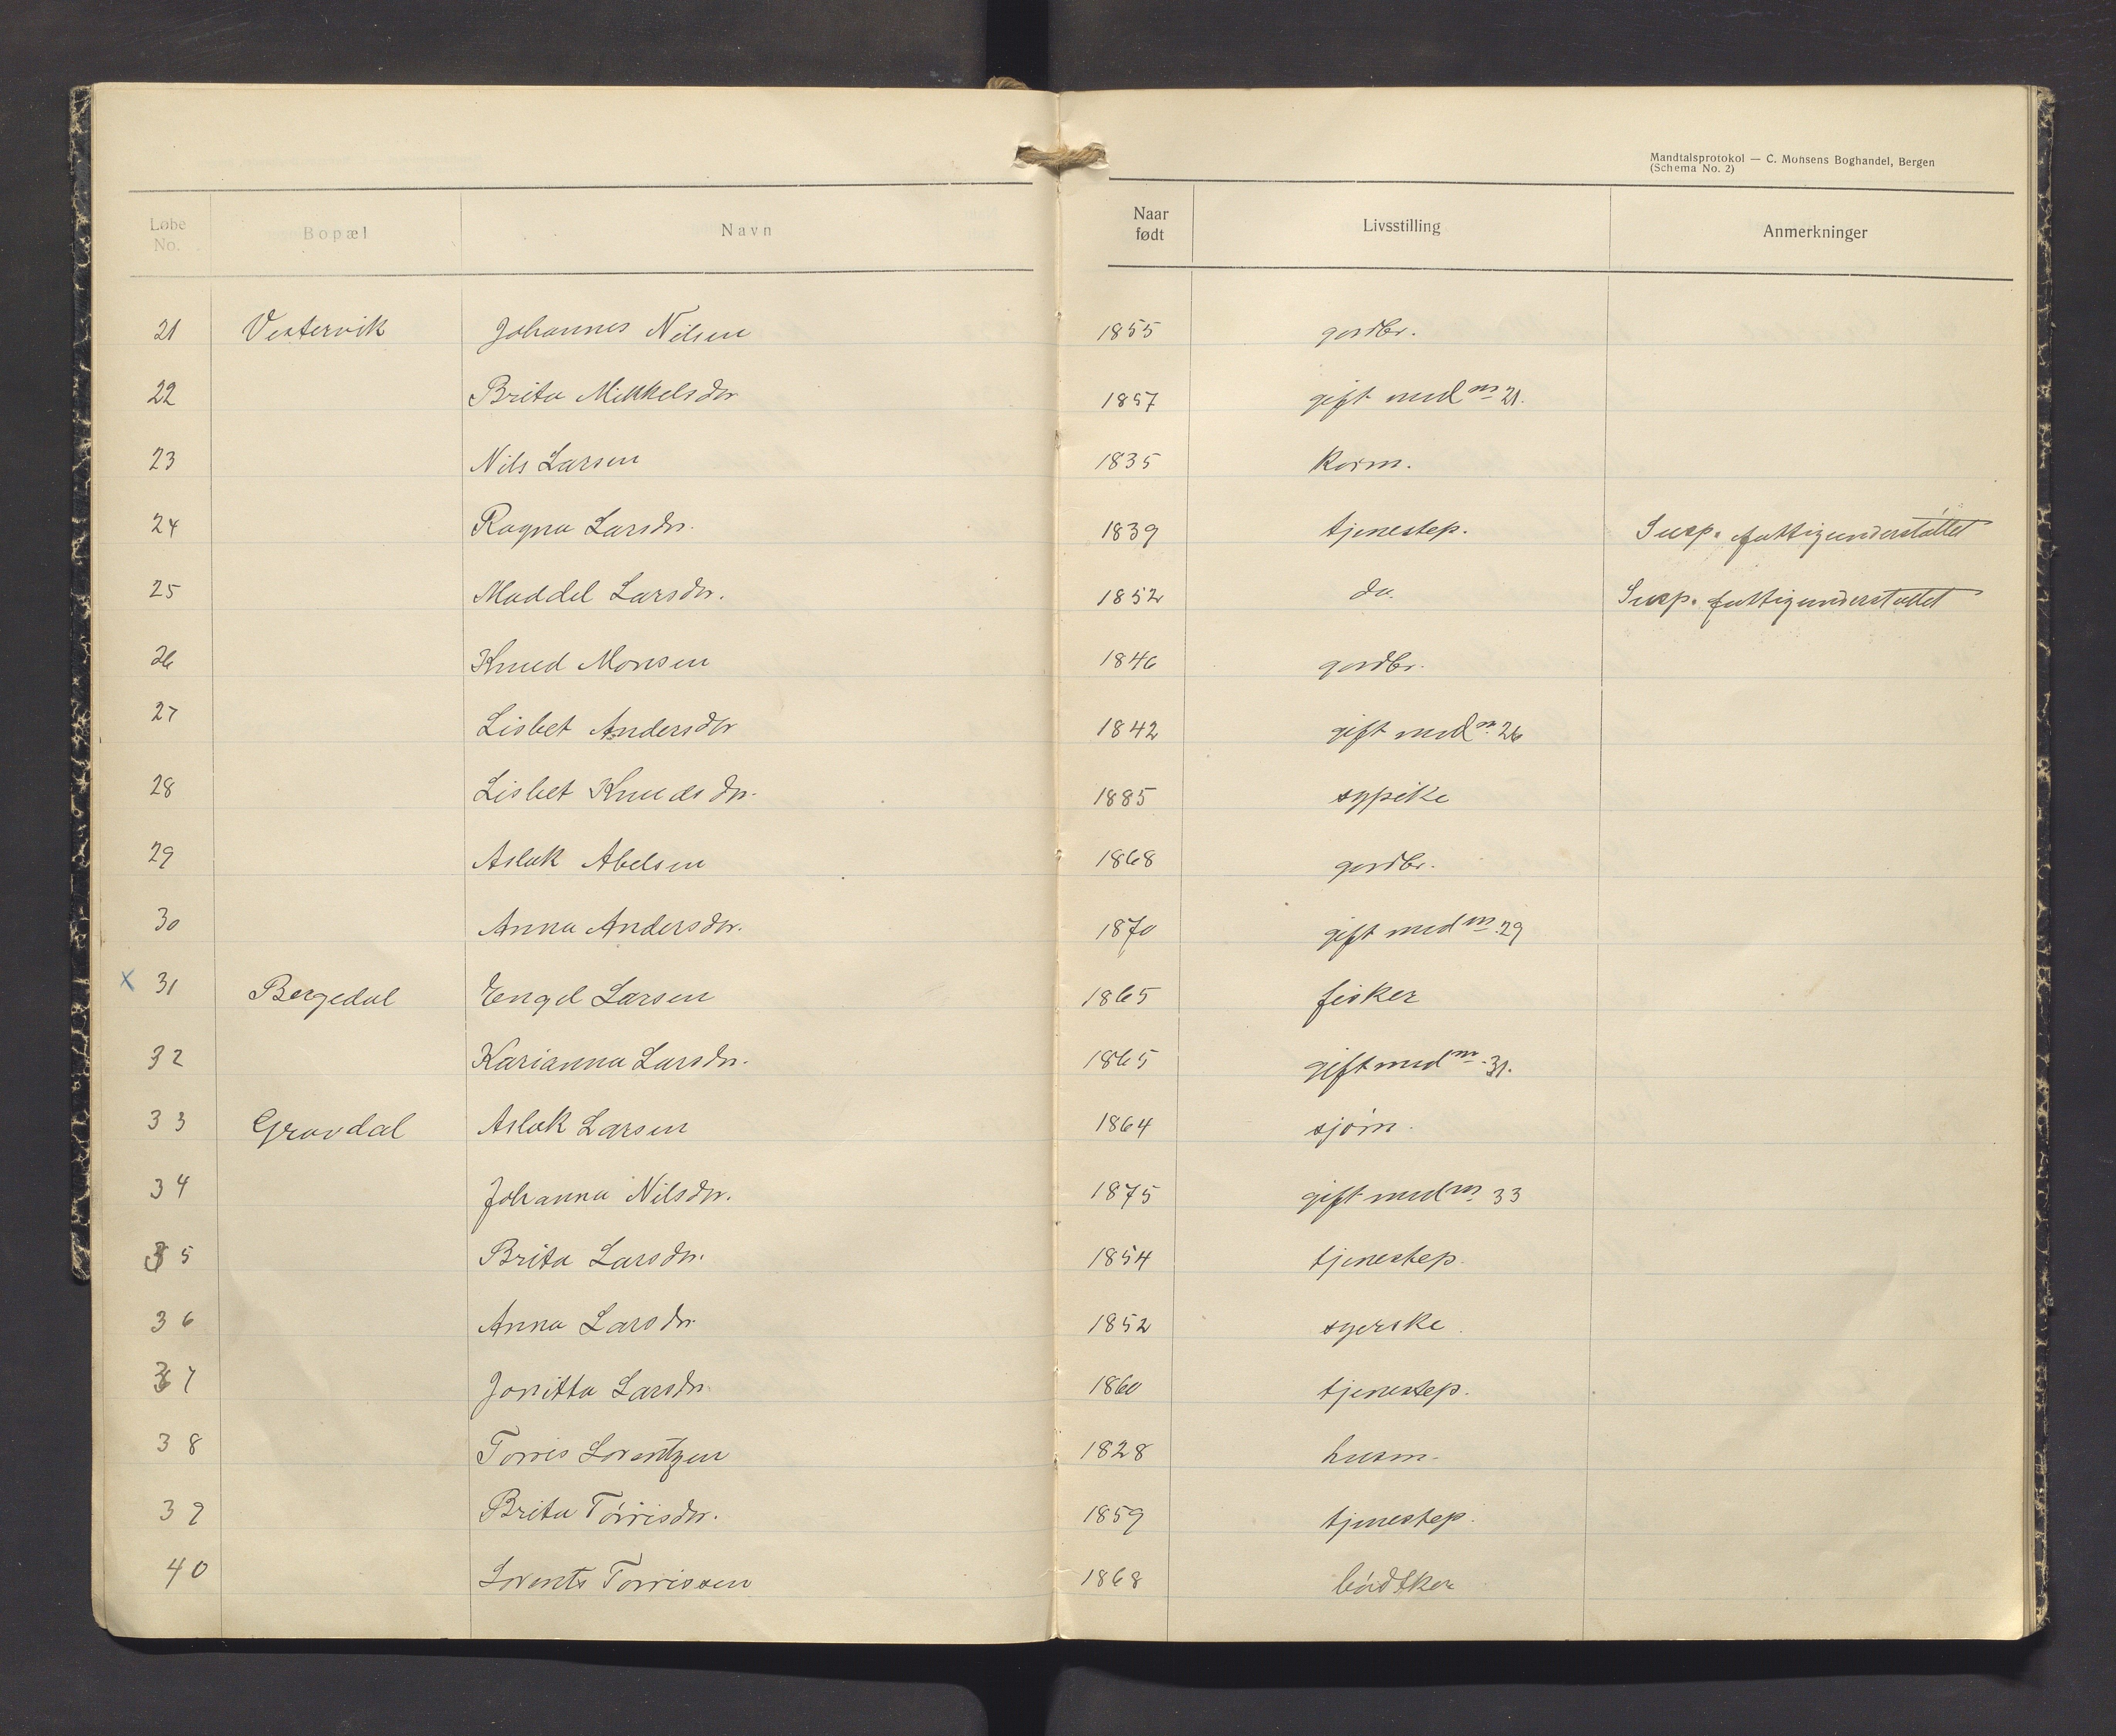 Mandtalsprotokol — C. Monsens Boghandel, Bergen
(Schema No. 2)
Løbe No. Bopæl Navn Naar født Livsstilling Anmerkninger
21 Vestervik Johannes Nilsen 1855 gardbr.
22 Brita Mikkelsdr 1857 gift med no 21.
23 Nils Larsen 1835 Kårm.
24 Ragna Larsdr. 1839 tjenestep. Susp. fattigunderstøttet
25 Maddel Larsdr. 1852 do. Susp. fattigunderstøttet
26 Knud Monsen 1846 gardbr.
27 Lisbet Andersdr 1842 gift med no 26
28 Lisbet Knudsdr. 1885 sypike
29 Aslak Abelsen 1868 gardbr.
30 Anna Andersdr. 1870 gift med no 29
x 31 Bergedal Engel Larsen 1865 fisker
32 Karianna Larsdr. 1865 gift med no 31.
33 Gravdal Aslak Larsen 1864 sjøm.
34 Johanna Nilsdr. 1875 gift med no 33
35 Brita Larsdr. 1854 tjenestep.
36 Anna Larsdr. 1852 syerske
37 Jonitta Larsdr. 1860 tjenestep.
38 Torris Lorentzen 1828 husm.
39 Brita Tørrisdr. 1859 tjenestep.
40 Lorents Torrissen 1868 bødtker